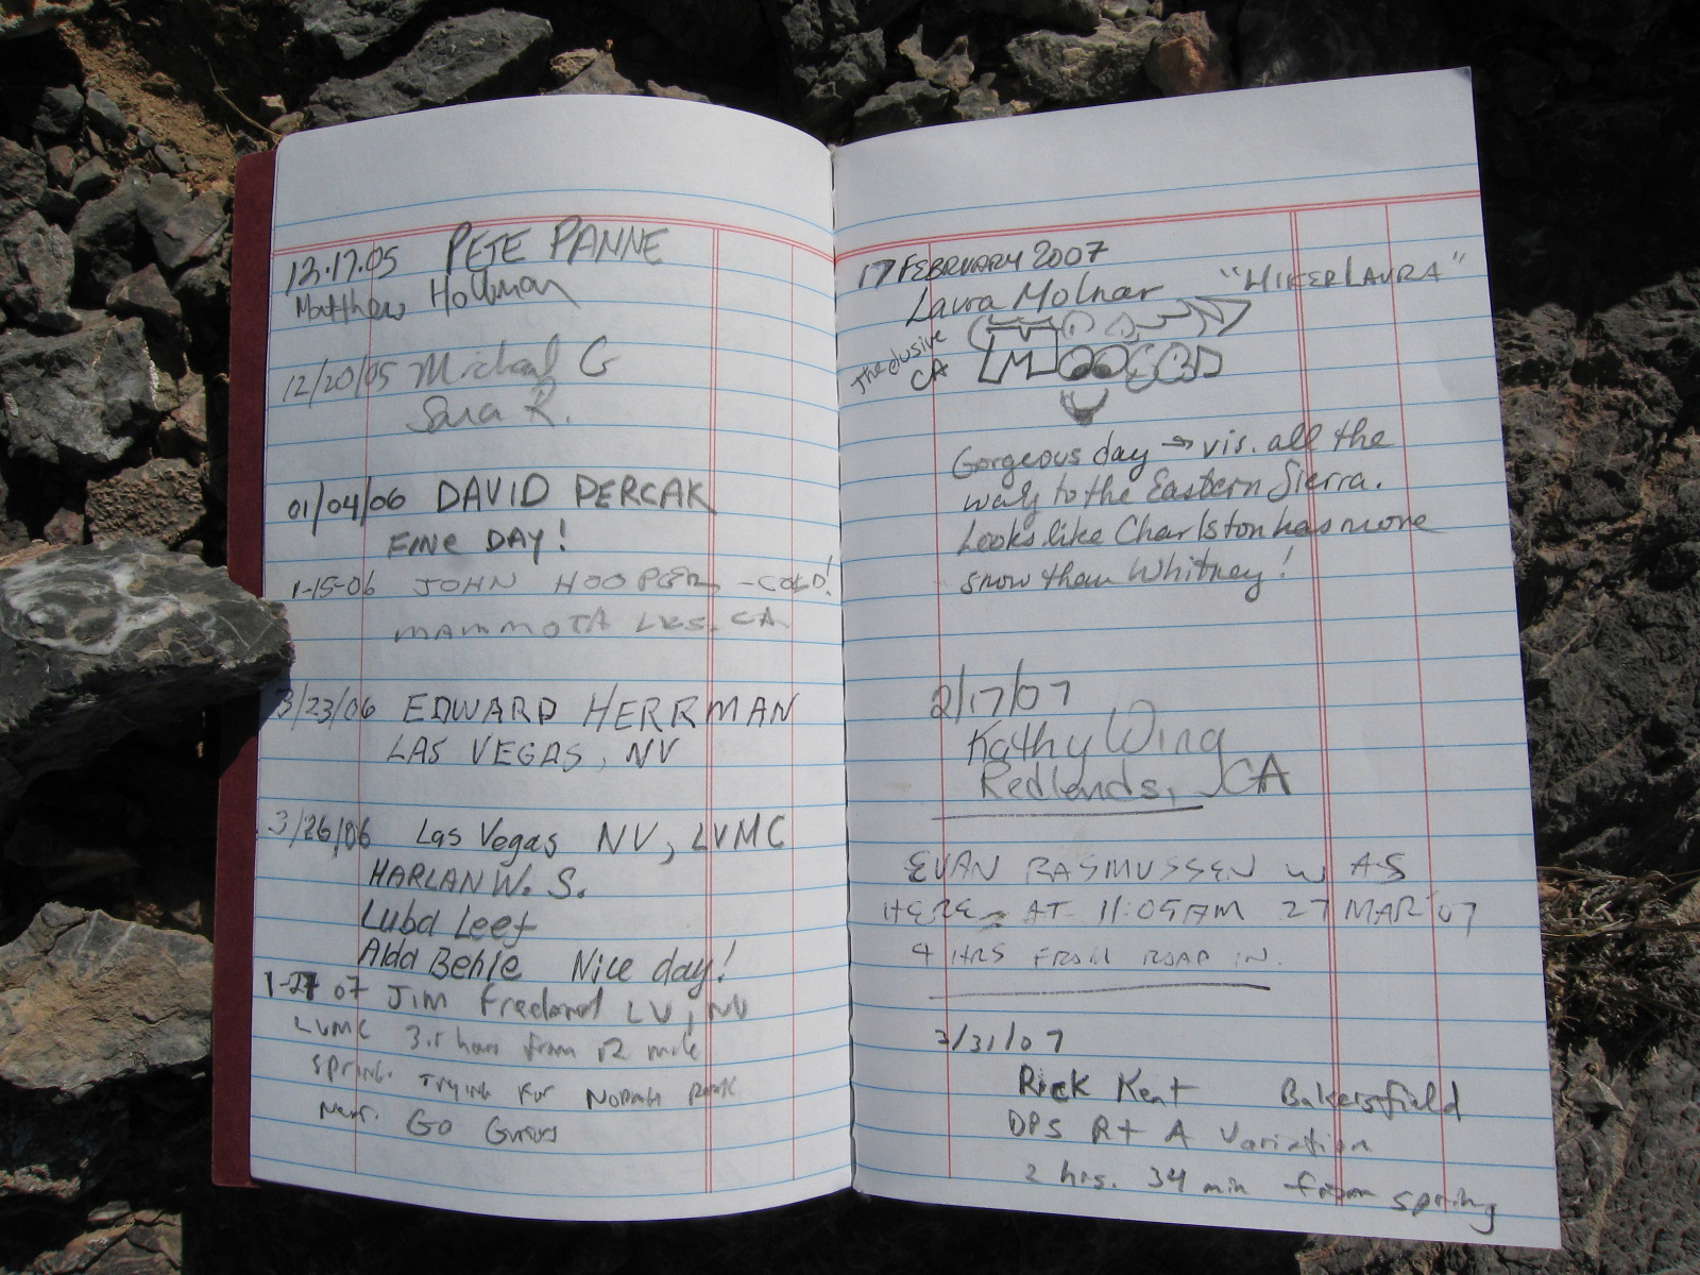 12.17.05 PETE PANNE
Matthew Hollman
12/20/05 Michael G
Sara R.
01/04/06 DAVID PERCAK
FINE DAY!
1-15-06 JOHN HOOPER -COLD!
MAMMOTH LKS. CA
3/23/06 EDWARD HERRMAN
LAS VEGAS, NV
3/26/06 Las Vegas NV, LVMC
HARLAN W. S.
Luba Leef
Alda Behle Nice day!
1-27 07 JIM LV, NV
LVMC 3.5 hours from 12 mile
Spring. Trying for North Peak
Next. Go
17 FEBRUARY 2007
Laura Molnar "HIKERLAURA"
The elusive
CA
Gorgeous day → vis. all the
way to the Eastern Sierra.
Looks like Charlston has more
snow than Whitney!
2/17/07
Kathy Wing
Redlands, CA
EVAN RASMUSSEN WAS
HERE AT 11:05AM 27 MAR '07
4 HRS FROM ROAD IN.
3/31/07
Rick Kent Bakersfield
DPS Rt A Variation
2 hrs. 34 min from spring